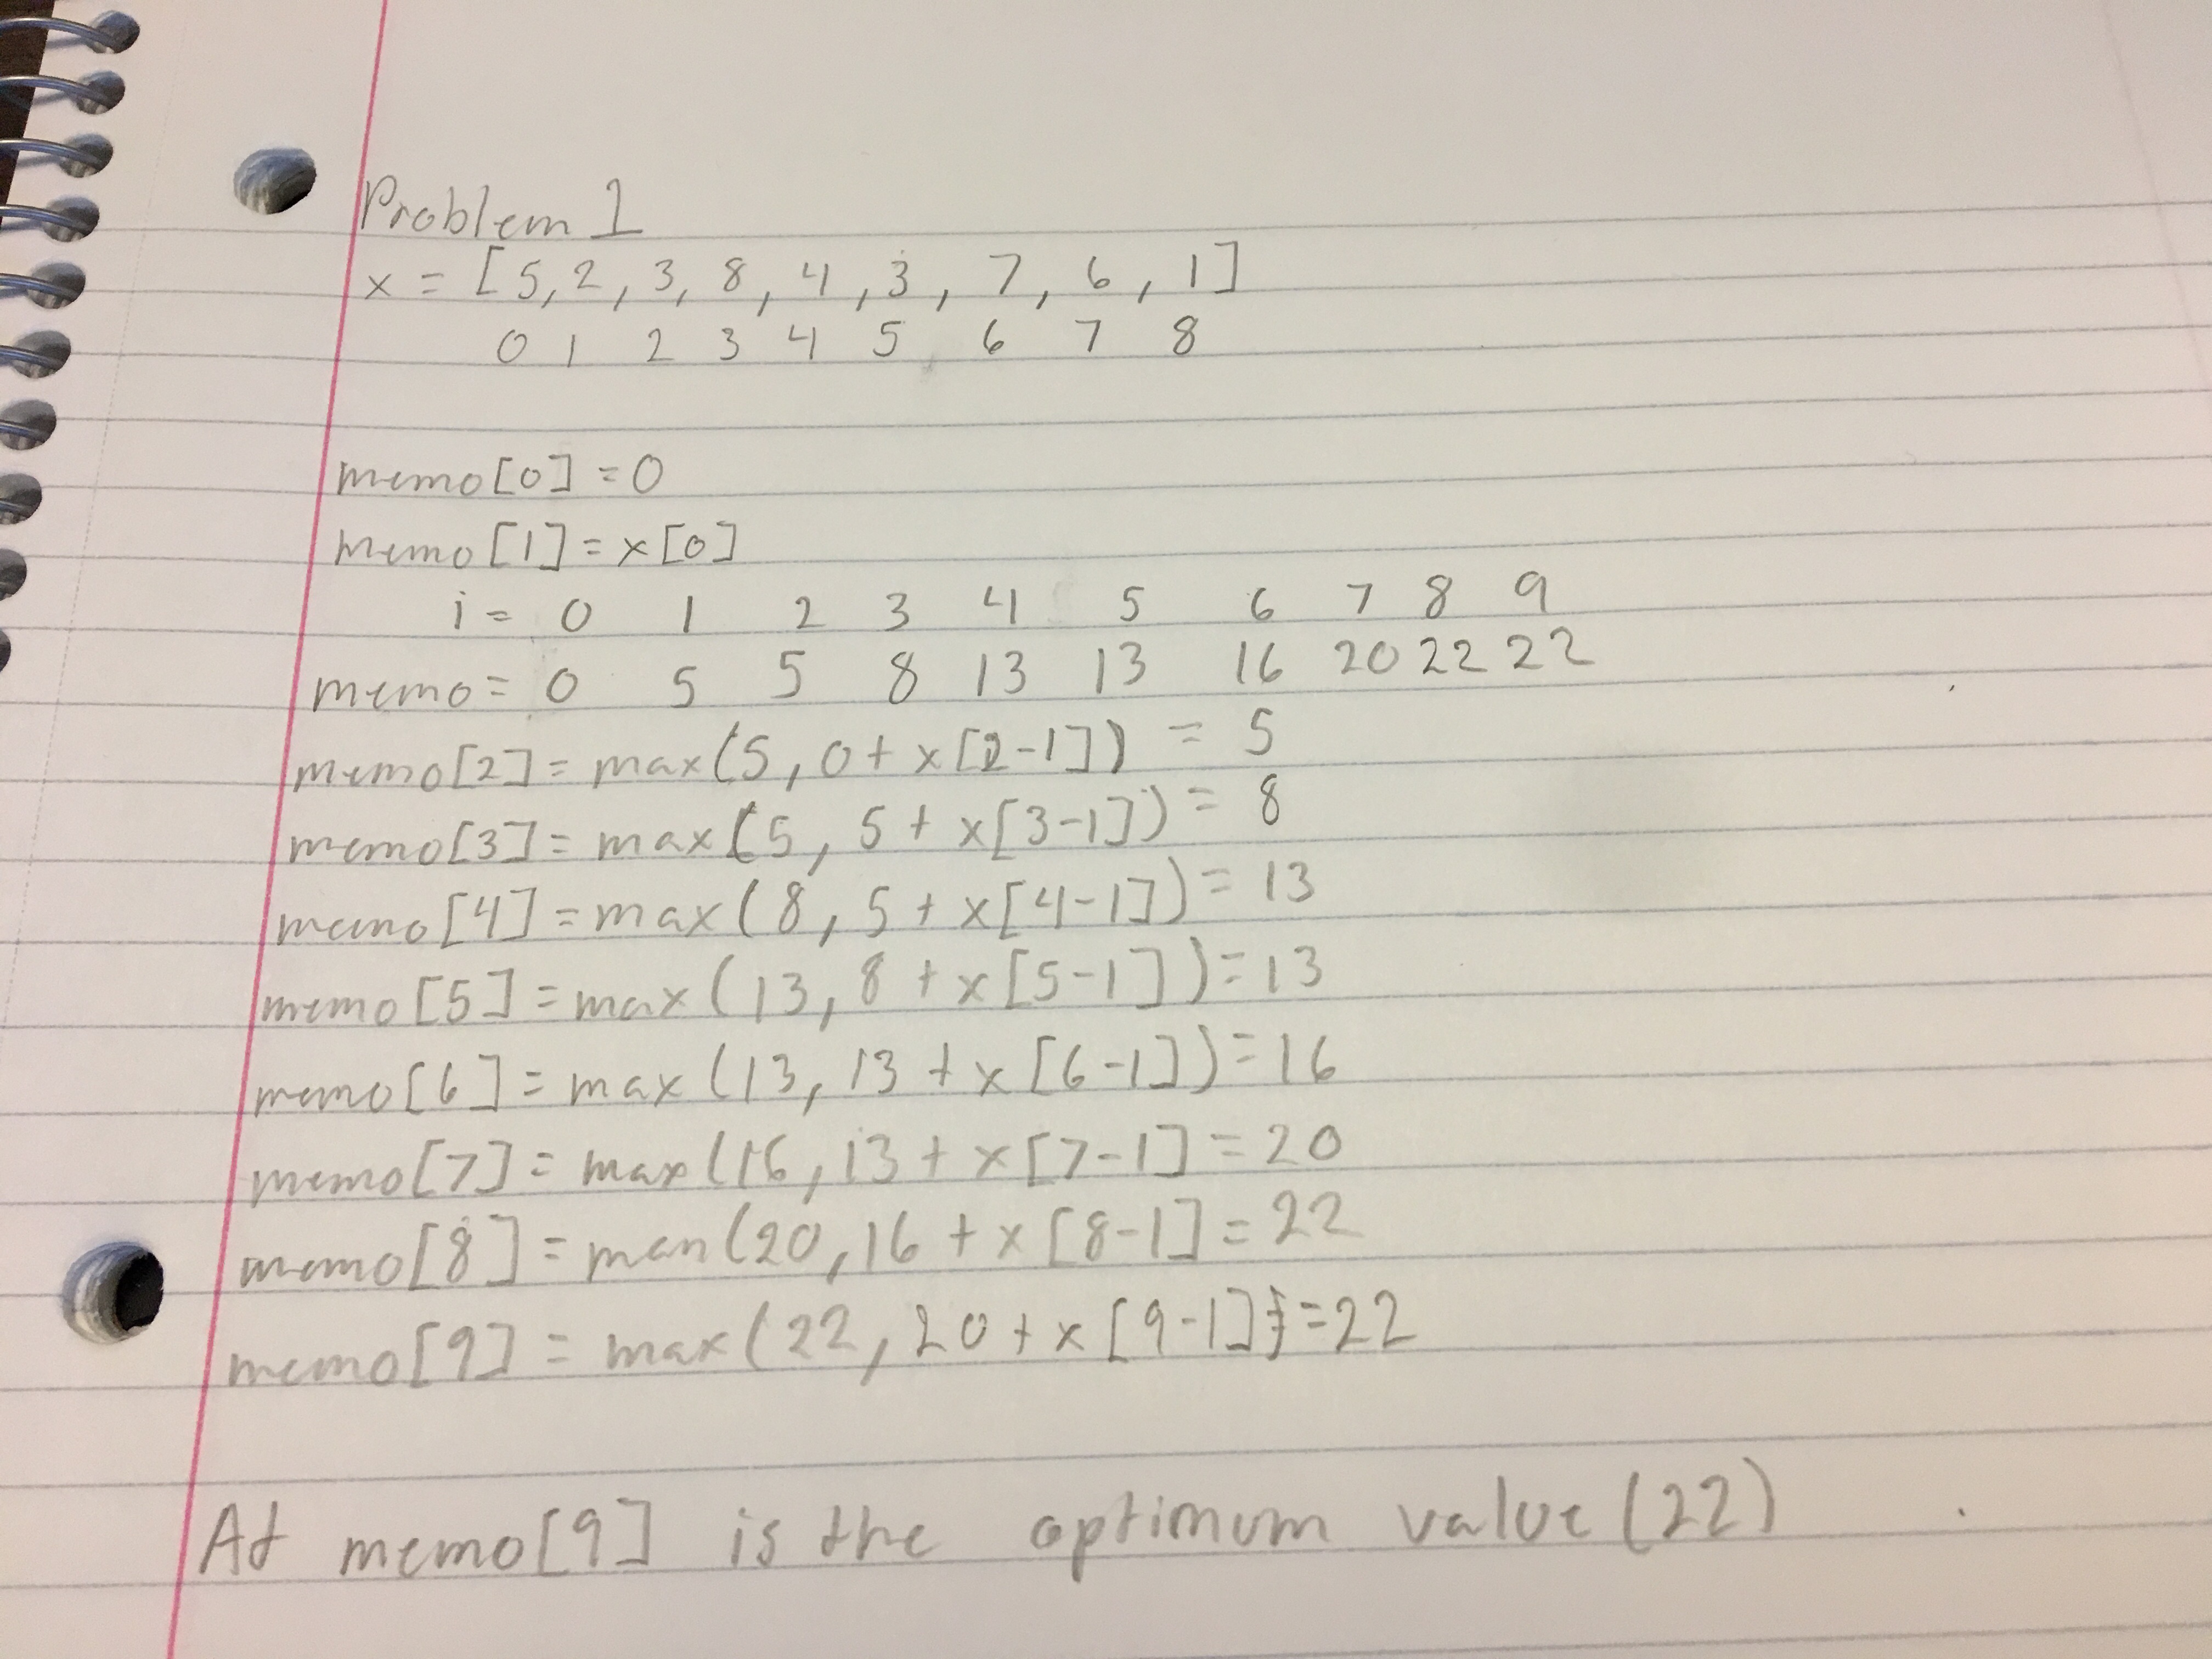 Problem 1
x = [5, 2, 3, 8, 4, 3, 7, 6, 1]
0 1 2 3 4 5 6 7 8
memo[0] = 0
memo[1] = x[0]
i = 0 1 2 3 4 5 6 7 8 9
memo = 0 5 5 8 13 13 16 20 22 22
memo[2] = max(5, 0 + x[2-1]) = 5
memo[3] = max(5, 5 + x[3-1]) = 8
memo[4] = max(8, 5 + x[4-1]) = 13
memo[5] = max(13, 8 + x[5-1]) = 13
memo[6] = max(13, 13 + x[6-1]) = 16
memo[7] = max(16, 13 + x[7-1] = 20
memo[8] = man(20, 16 + x[8-1] = 22
memo[9] = max(22, 20 + x[9-1]) = 22
At memo[9] is the optimum value (22)